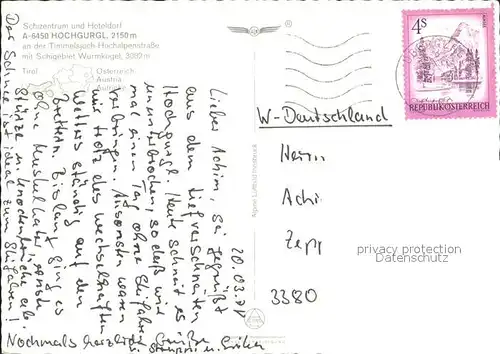 Schizentrum und Hoteldorf
A-6450 HOCHGURGL, 2150 m
an der Timmelsjoch-Hochalpenstraße
mit Schigebiet Wurmkogel, 3082 m
Tirol
Österreich
Austria
Autriche
20.03.
Lieber Achim, sei gegrüßt
aus dem tiefverschneiten
Hochgurgl. Heute schneit es
ununterbrochen, so daß wir
mal einen Tag ohne Skifahren
verbringen. Ansonsten waren
wir trotz des wechselhaften
Wetters ständig auf den
Brettern. Bislang ging es
ohne Muskelkater, ernste
Stürze u. Knochenbrüche ab.
Der Schnee ist ideal zum Skifahren!
Nochmals herzliche Grüße
u. Erika
Alpine Luftbild Innsbruck
4S
REPUBLIK ÖSTERREICH
W-Deutschland
Herrn
Achi
Zepp
3380
privacy protection
Datenschutz